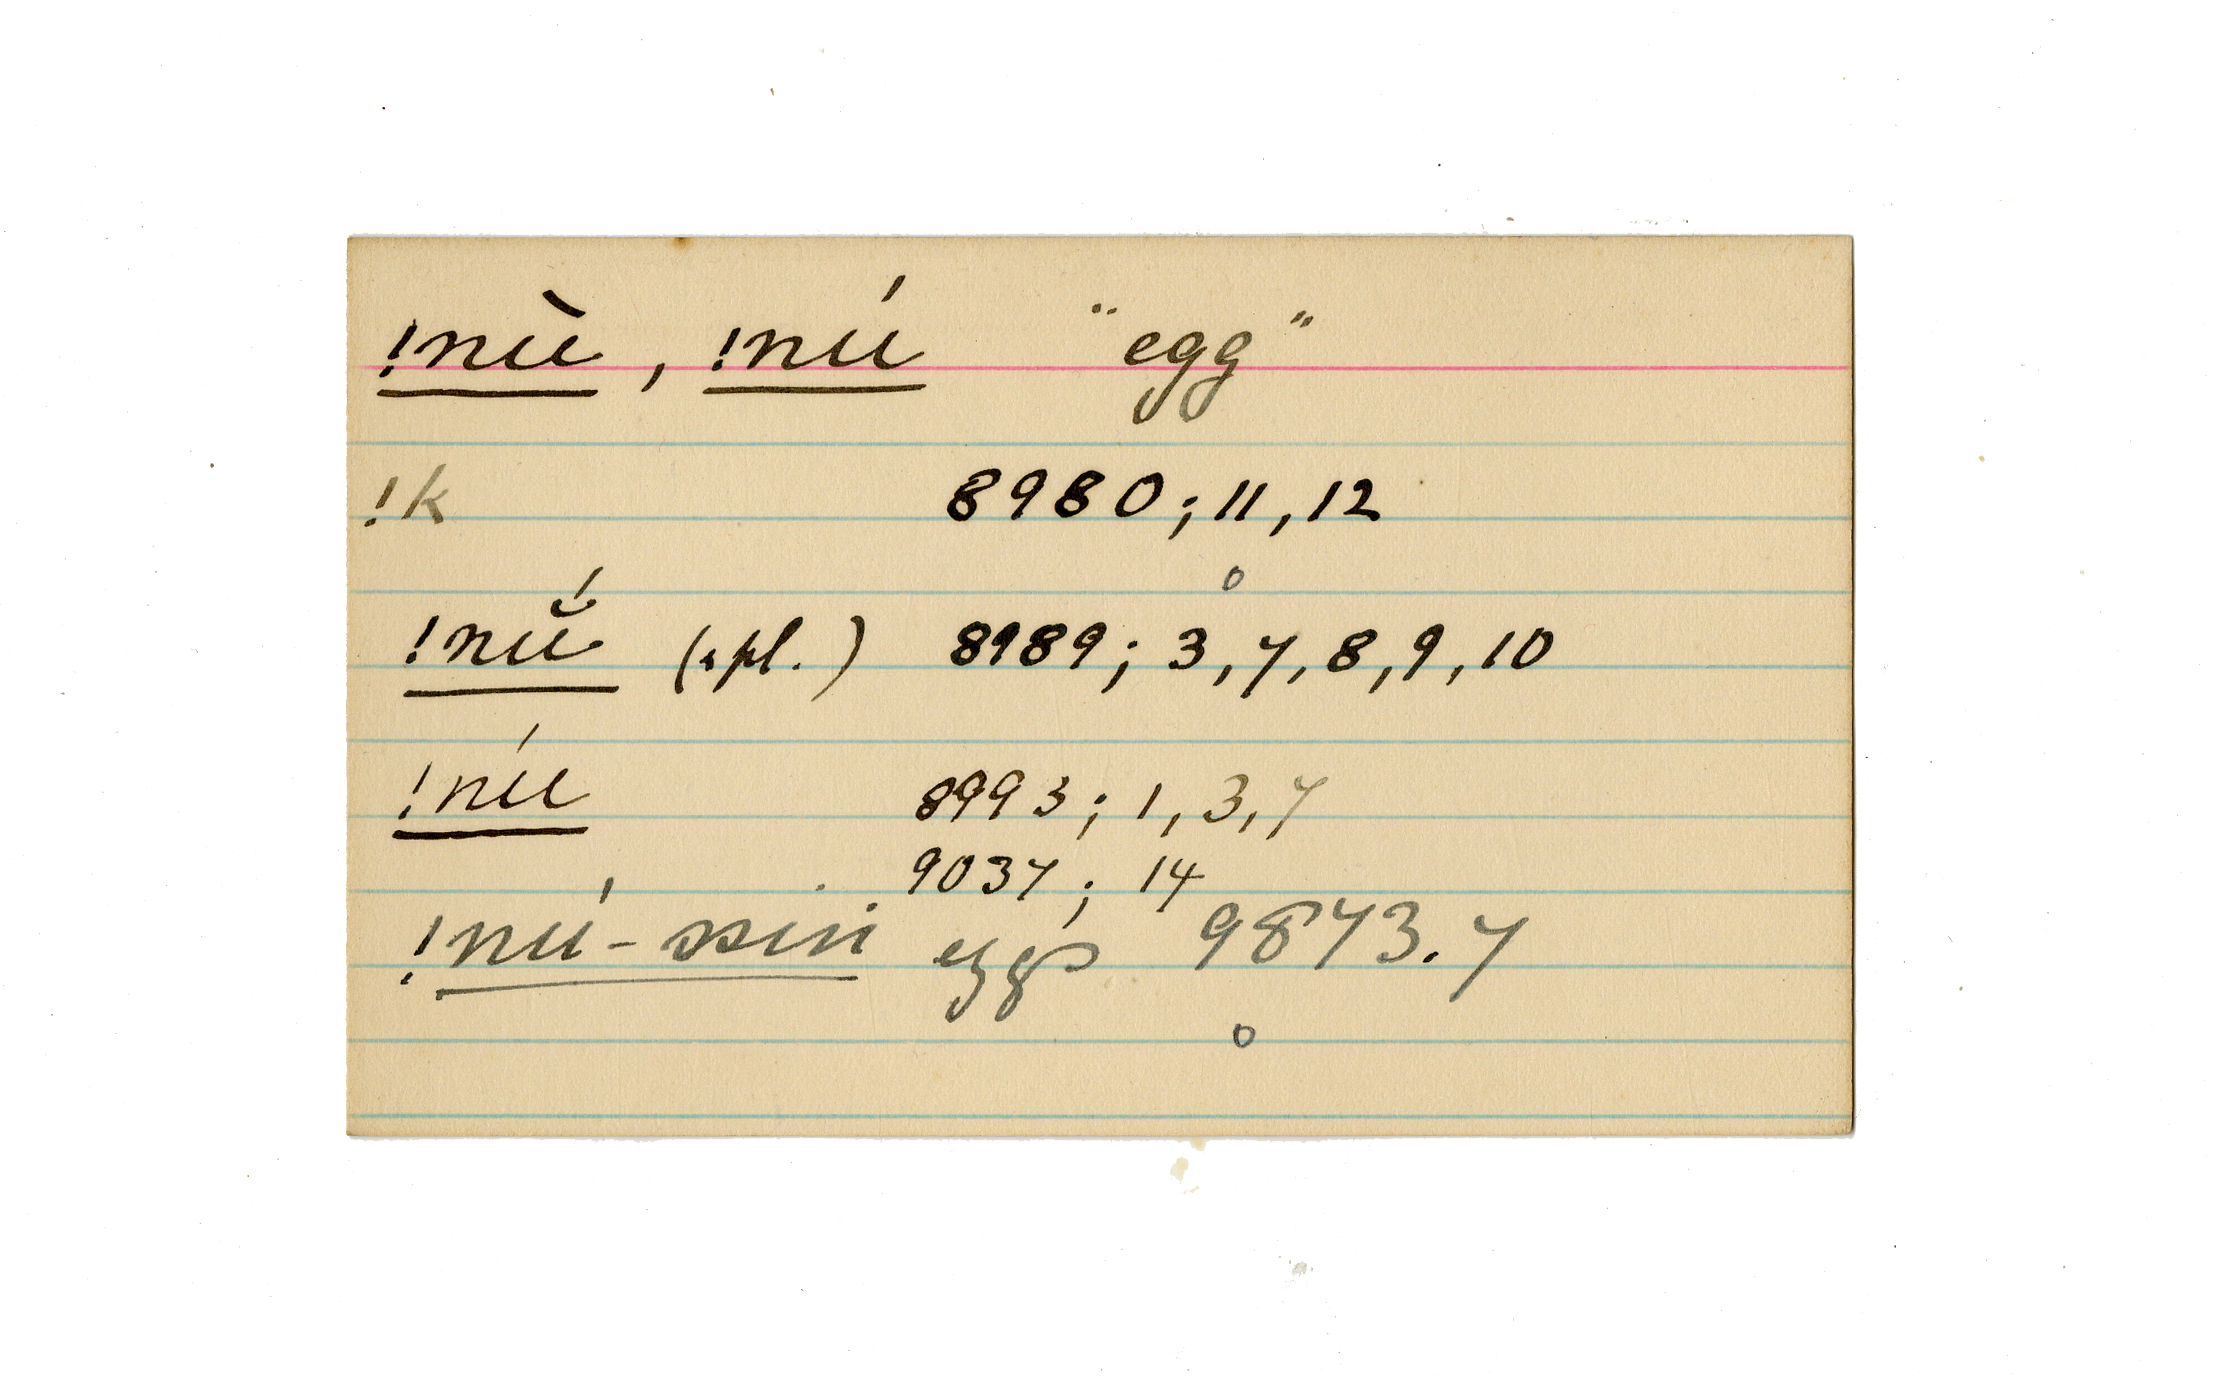 !nù, !nú "egg"
!k 8980; 11, 12
!nŭ́ (spl.) 8989; 3, 7, 8, 9, 10
!nú 8993; 1, 3, 7
9037; 14
!nú-ssin eggs 9873.7